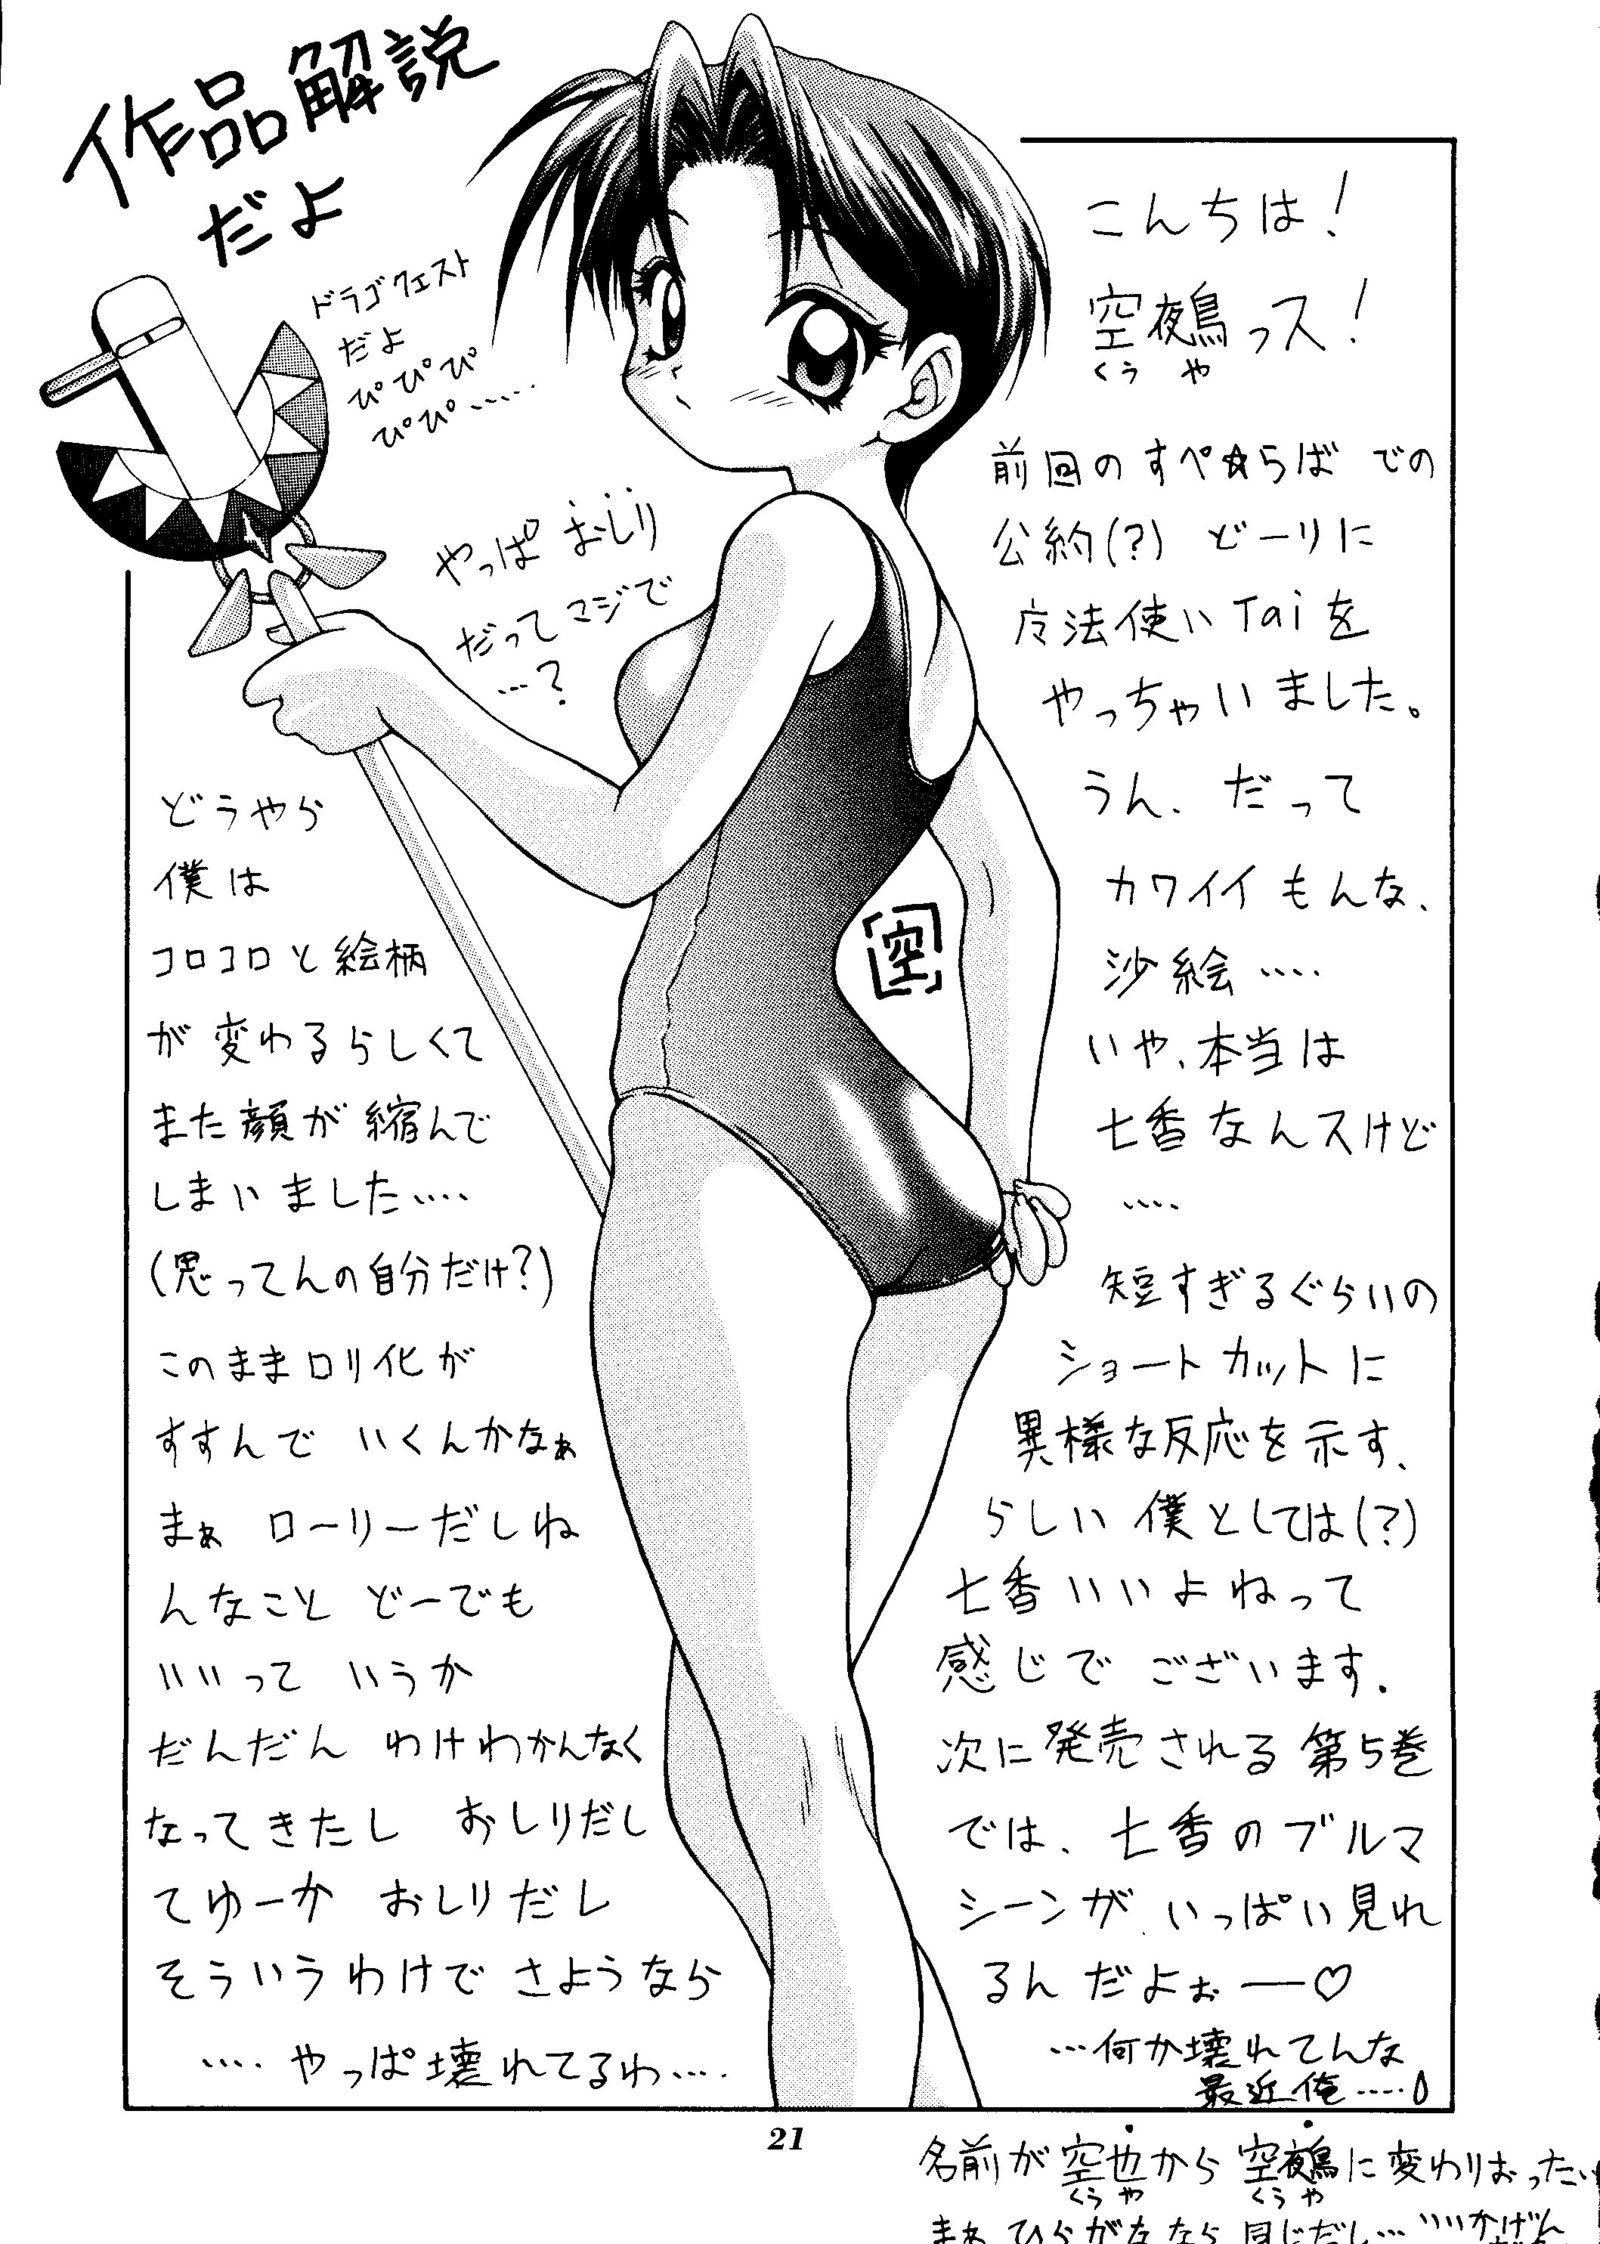 作品解説
だよ
ドラゴクエスト
だよ
ぴぴぴ
ぴぴ‥‥‥
やっぱ おしり
だって マジで
…?
こんちは!
空夜鳥っス!
くう や
前回の すぺ☆らば での
公約(?) どーりに
魔法使い Taiを
やっちゃいました。
うん、だって
カワイイもんな、
沙絵‥‥
いや、本当は
七香なんスけど
‥‥
短すぎるぐらいの
ショートカットに
異様な反応を示す、
らしい 僕としては(?)
七香いいよねって
感じで ございます.
次に発売される第5巻
では、七香のブルマ
シーンが いっぱい見れ
るんだよぉ――♡
…何か壊れてんな
最近俺‥‥
[空]
どうやら
僕は
コロコロと絵柄
が変わるらしくて
また顔が縮んで
しまいました‥‥
(思ってんの自分だけ?)
このままロリ化が
すすんで いくんかなぁ
まぁ ローリーだしね
んなこと どーでも
いいって いうか
だんだん わけわかんなく
なってきたし おしりだし
てゆーか おしりだし
そういうわけで さようなら
‥‥やっぱ壊れてるわ‥‥
21
名前が空也から空夜鳥に変わりおった‥
くう や くう や
まぁ ひらがななら 同じだし… いいかげん